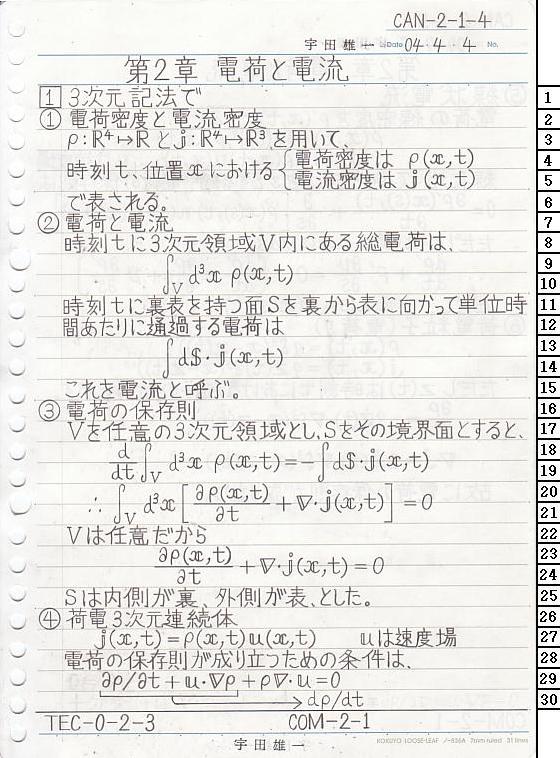 CAN-2-1-4
宇田雄一 Date 04・4・4 No.
第2章 電荷と電流
1 3次元記法で
① 電荷密度と電流密度
ρ:R⁴↦R と j:R⁴↦R³ を用いて、
時刻t、位置xにおける{電荷密度は ρ(x,t)
電流密度は j(x,t)
で表される。
② 電荷と電流
時刻tに3次元領域V内にある総電荷は、
∫_V d³x ρ(x,t)
時刻tに裏表を持つ面Sを裏から表に向かって単位時
間あたりに通過する電荷は
∫dS・j(x,t)
これを電流と呼ぶ。
③ 電荷の保存則
Vを任意の3次元領域とし、Sをその境界面とすると、
d/dt ∫_V d³x ρ(x,t) = -∫dS・j(x,t)
∴ ∫_V d³x [∂ρ(x,t)/∂t + ∇・j(x,t)] = 0
Vは任意だから
∂ρ(x,t)/∂t + ∇・j(x,t) = 0
Sは内側が裏、外側が表、とした。
④ 荷電3次元連続体
j(x,t) = ρ(x,t)u(x,t) uは速度場
電荷の保存則が成り立つための条件は、
∂ρ/∂t + u・∇ρ + ρ∇・u = 0
→ dρ/dt
TEC-0-2-3 COM-2-1
宇田雄一 KOKUYO LOOSE-LEAF ノ-836A 7mm ruled 31 lines
1
2
3
4
5
6
7
8
9
10
11
12
13
14
15
16
17
18
19
20
21
22
23
24
25
26
27
28
29
30